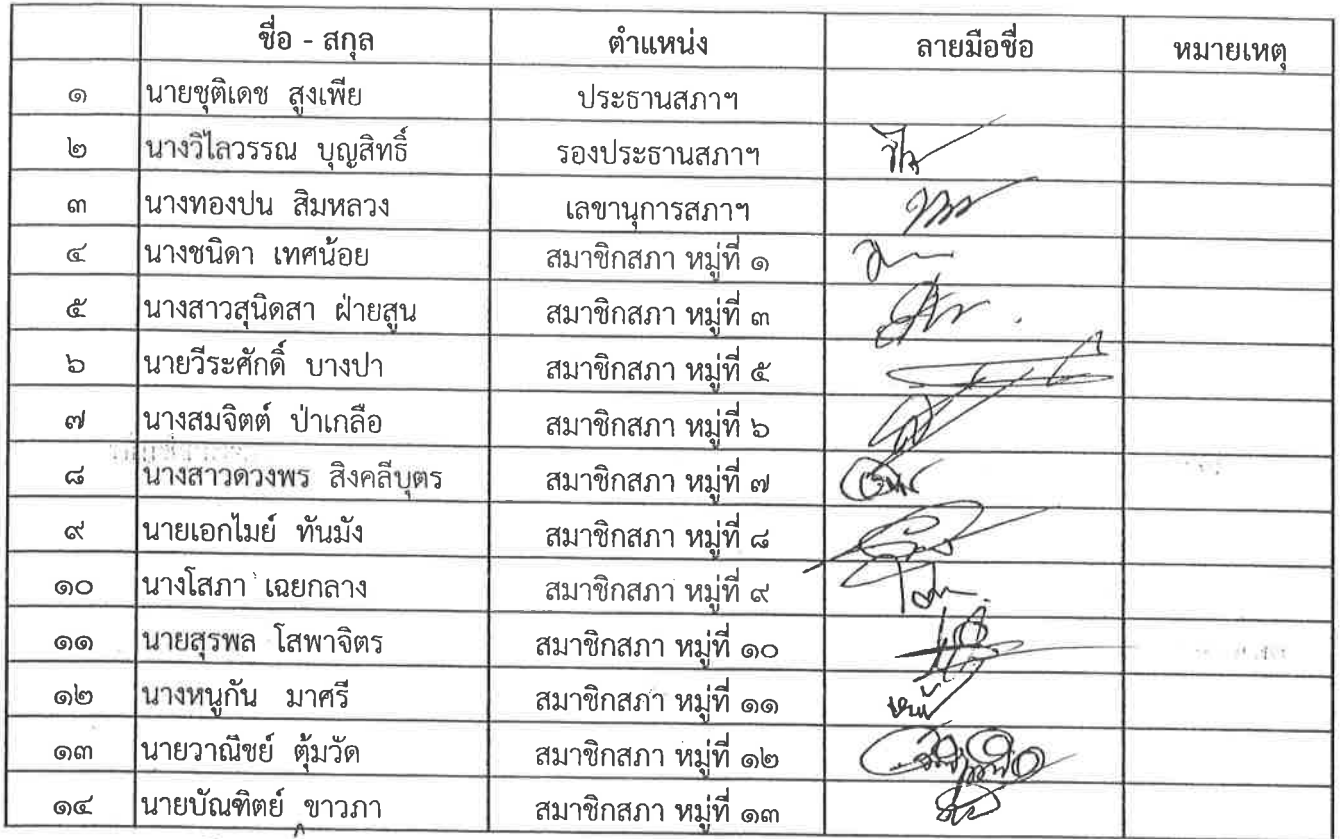 ชื่อ - สกุล ตำแหน่ง ลายมือชื่อ หมายเหตุ
๑ นายชุติเดช สูงเพีย ประธานสภาฯ
๒ นางวิไลวรรณ บุญสิทธิ์ รองประธานสภาฯ
๓ นางทองปน สิมหลวง เลขานุการสภาฯ
๔ นางชนิดา เทศน้อย สมาชิกสภา หมู่ที่ ๑
๕ นางสาวสุนิดสา ฝ่ายสูน สมาชิกสภา หมู่ที่ ๓
๖ นายวีระศักดิ์ บางปา สมาชิกสภา หมู่ที่ ๕
๗ นางสมจิตต์ ป่าเกลือ สมาชิกสภา หมู่ที่ ๖
๘ นางสาวดวงพร สิงคลีบุตร สมาชิกสภา หมู่ที่ ๗
๙ นายเอกไมย์ ทันมัง สมาชิกสภา หมู่ที่ ๘
๑๐ นางโสภา เฉยกลาง สมาชิกสภา หมู่ที่ ๙
๑๑ นายสุรพล โสพาจิตร สมาชิกสภา หมู่ที่ ๑๐
๑๒ นางหนูกัน มาศรี สมาชิกสภา หมู่ที่ ๑๑
๑๓ นายวาณิชย์ ตุ้มวัด สมาชิกสภา หมู่ที่ ๑๒
๑๔ นายบัณฑิตย์ ขาวภา สมาชิกสภา หมู่ที่ ๑๓